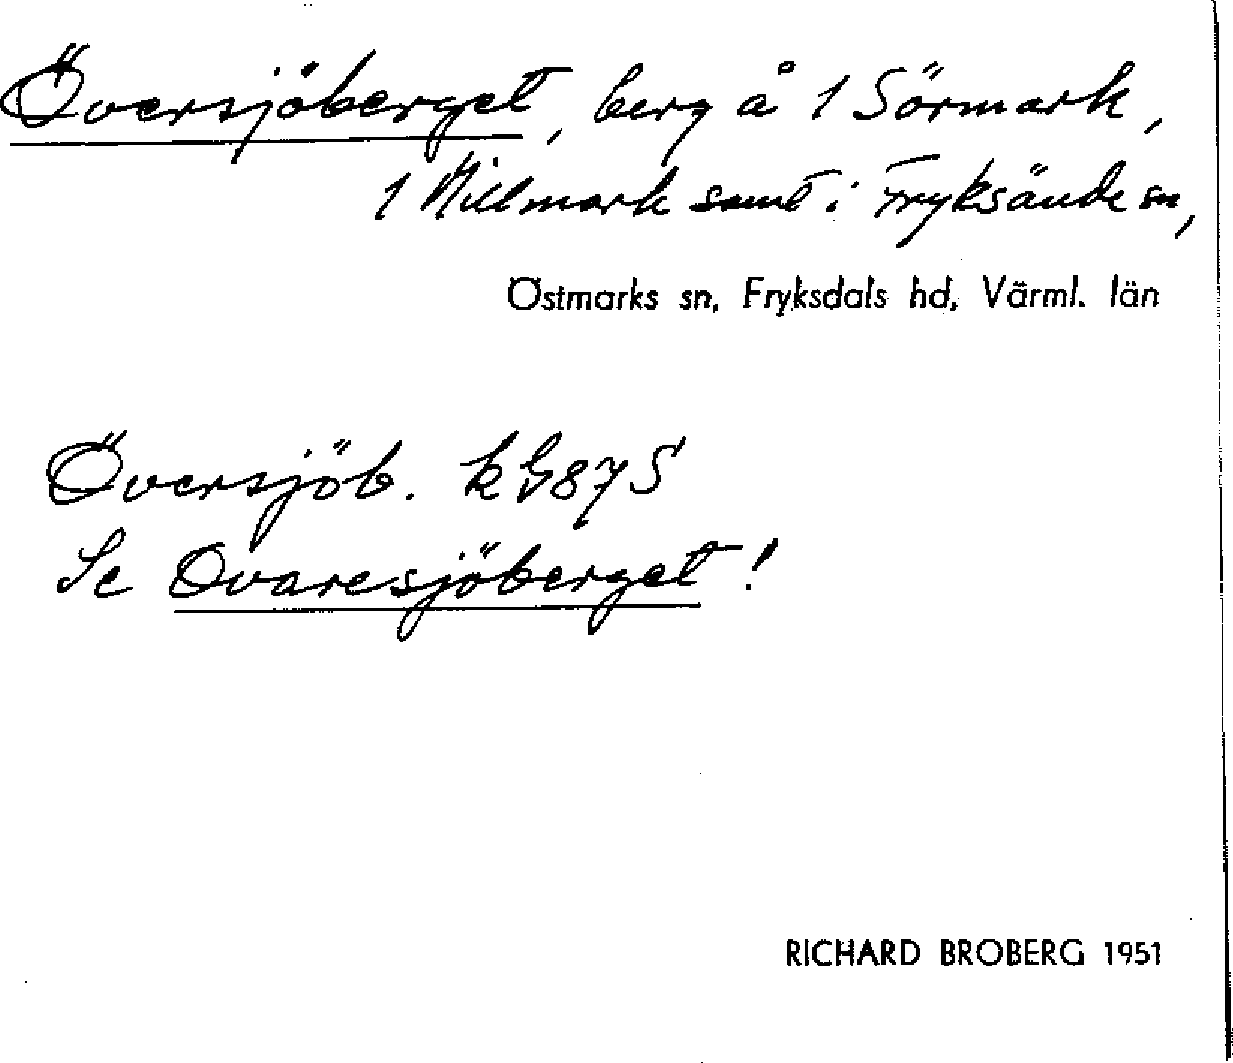 Översjöberget, berg å 1 Sörmark,
1 Millmark samt i Fryksände sn,
Östmarks sn, Fryksdals hd, Värml. län
Översjöb. k G87S
Se Ovaresjöberget!
RICHARD BROBERG 1951